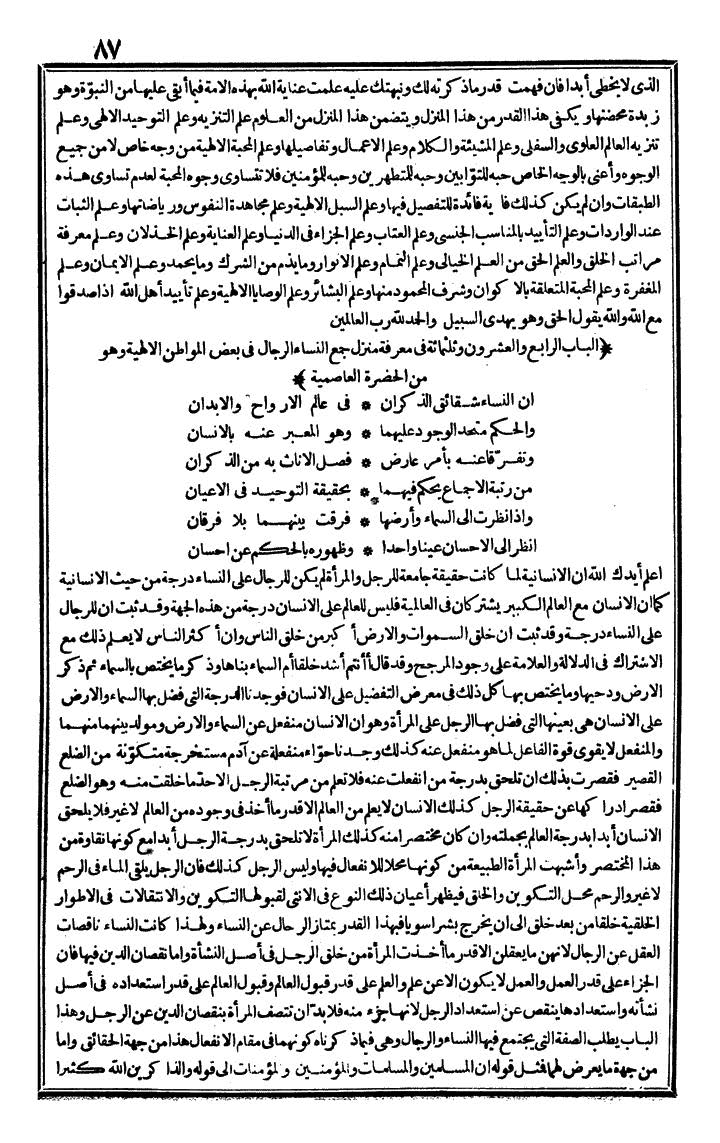 ٨٧
الذى لا يخطى أبدا فان فهمت قدر ماذ كرته لك ونبهتك عليه علمت عناية الله بهذه الامة فيما أبقى عليها من النبوّة وهو
زبدة مخضتها ويكفى هذا القدر من هذا المنزل ويتضمن هذا المنزل من العلوم علم التنزيه وعلم التوحيد الالهى وعلم
تنزيه العالم العلوى والسفلى وعلم المشيئة والكلام وعلم الاعمال وتفاصيلها وعلم المحبة الالهية من وجه خاص لا من جميع
الوجوه وأعنى بالوجه الخاص حبه للتوّابين وحبه للمتطهرين وحبه للمؤمنين فلا تتساوى وجوه المحبة لعدم تساوى هذه
الطبقات وان لم يكن كذلك فاية فائدة للتفصيل فيها وعلم السبل الالهية وعلم مجاهدة النفوس ورياضاتها وعلم الثبات
عند الواردات وعلم التأييد بالمناسب الجنسى وعلم العتاب وعلم الجزاء فى الدنيا وعلم العناية وعلم الخذلان وعلم معرفة
مراتب الخلق والعلم الحق من العلم الخيالى وعلم التمام وعلم الانوار وما يذم من الشرك وما يحمد وعلم الايمان وعلم
المغفرة وعلم المحبة المتعلقة بالاكوان وشرف المحمود منها وعلم البشائر وعلم الوصايا الالهية وعلم تأييد أهل الله اذا صدقوا
مع الله والله يقول الحق وهو يهدى السبيل والحمد لله رب العالمين
﴿الباب الرابع والعشرون وثلثمائة فى معرفة منزل جمع النساء الرجال فى بعض المواطن الالهية وهو
من الحضرة العاصمية﴾
ان النساء شقائق الذكران * فى عالم الارواح والابدان
والحكم متحد الوجود عليهما * وهو المعبر عنه بالانسان
وتفرّقا عنه بأمر عارض * فصل الاناث به من الذكران
من رتبة الاجماع يحكم فيهما * بحقيقة التوحيد فى الاعيان
واذا نظرت الى السماء وأرضها * فرقت بينهما بلا فرقان
انظر الى الاحسان عينا واحدا * وظهوره بالحكم عن احسان
اعلم أيدك الله ان الانسانية لما كانت حقيقة جامعة للرجل والمرأة لم يكن للرجال على النساء درجة من حيث الانسانية
كما ان الانسان مع العالم الكبير يشتركان فى العالمية فليس للعالم على الانسان درجة من هذه الجهة وقد ثبت ان للرجال
على النساء درجة وقد ثبت ان خلق السموات والارض أكبر من خلق الناس وان أكثر الناس لا يعلم ذلك مع
الاشتراك فى الدلالة والعلامة على وجود المرجح وقد قال أأنتم أشد خلقا أم السماء بناها وذكر ما يختص بالسماء ثم ذكر
الارض ودحيها وما يختص بها كل ذلك فى معرض التفضيل على الانسان فوجدنا الدرجة التى فضل بها السماء والارض
على الانسان هى بعينها التى فضل بها الرجل على المرأة وهو ان الانسان منفعل عن السماء والارض ومولد بينهما منهما
والمنفعل لا يقوى قوة الفاعل لما هو منفعل عنه كذلك وجدنا حوّاء منفعلة عن آدم مستخرجة متكوّنة من الضلع
القصير فقصرت بذلك ان تلحق بدرجة من انفعلت عنه فلا تعلم من مرتبة الرجل الا حدّ ما خلقت منه وهو الضلع
فقصر ادراكها عن حقيقة الرجل كذلك الانسان لا يعلم من العالم الا قدر ما أخذ فى وجوده من العالم لا غير فلا يلحق
الانسان أبدا بدرجة العالم بجملته وان كان مختصرا منه كذلك المرأة لا تلحق بدرجة الرجل أبدا مع كونها نقاوة من
هذا المختصر وأشبهت المرأة الطبيعة من كونها محلا للانفعال فيها وليس الرجل كذلك فان الرجل يلقى الماء فى الرحم
لا غير والرحم محل التكوين والخلق فيظهر أعيان ذلك النوع فى الانثى لقبولها التكوين والانتقالات فى الاطوار
الخلقية خلقا من بعد خلق الى ان يخرج بشرا سويا فبهذا القدر يمتاز الرجال عن النساء ولهذا كانت النساء ناقصات
العقل عن الرجال لانهن ما يعقلن الا قدر ما أخذت المرأة من خلق الرجل فى أصل النشأة واما نقصان الدين فيها فان
الجزاء على قدر العمل والعمل لا يكون الا عن علم والعلم على قدر قبول العالم وقبول العالم على قدر استعداده فى أصل
نشأته واستعدادها ينقص عن استعداد الرجل لانها جزء منه فلا بدّ ان تتصف المرأة بنقصان الدين عن الرجل وهذا
الباب يطلب الصفة التى يجتمع فيها النساء والرجال وهى فيما ذكرناه كونهما فى مقام الانفعال هذا من جهة الحقائق واما
من جهة ما يعرض لهما فمثل قوله ان المسلمين والمسلمات والمؤمنين والمؤمنات الى قوله والذاكرين الله كثيرا